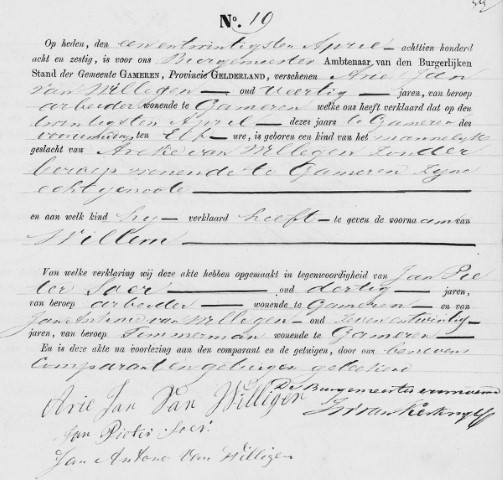 No. 19
Op heden, den eenentwintigsten April achttien honderd
acht en zestig, is voor ons Burgemeester Ambtenaar van den Burgerlijken
Stand der Gemeente GAMEREN, Provincie GELDERLAND, verschenen Arie Jan
van Willegen oud veertig jaren, van beroep
arbeider wonende te Gameren welke ons heeft verklaard dat op den
twintigsten April dezes jaars te Gameren des
voormiddag ten Elf ure, is geboren een kind van het mannelyk
geslacht van van Willegen zonder
beroep wonende te Gameren zyne
echtgenoote
en aan welk kind hy verklaard heeft te geven de voornaam van
Willem
Van welke verklaring wij deze akte hebben opgemaakt in tegenwoordigheid van Jan Pie
ter Soer oud dertig jaren,
van beroep arbeider wonende te Gameren en van
Jan Antonie van Willegen oud zevenentwintig
jaren, van beroep Timmerman wonende te Gameren
En is deze akte na voorlezing aan den comparant en de getuigen, door ons benevens
comparant en getuigen geteekend
Arie Jan Van Willigen
De Burgemeester voornoemd
Jan Pieter Soer
Jan Antone Van Willigen